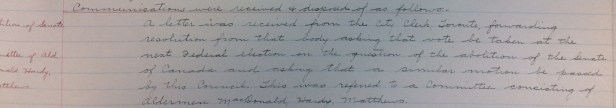 Communications were received & disposed of as follows.
A letter was received from the City Clerk Toronto, forwarding
resolution from that body asking that vote be taken at the
next Federal election on the question of the abolition of the Senate
of Canada and asking that a similar motion be passed
by this Council. This was referred to a Committee consisting of
Aldermen MacDonald, Hardy, Matthews.